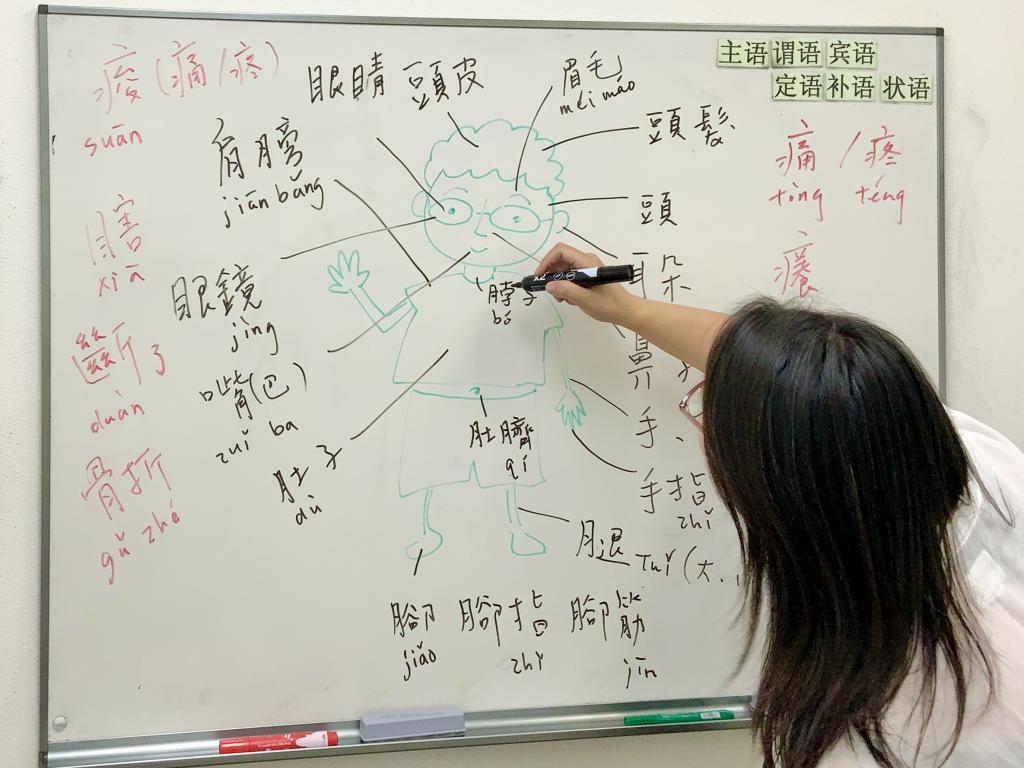 主语 谓语 宾语
定语 补语 状语
痠(痛/疼)
suān
瞎
xiā
斷了
duàn
骨折
gǔ zhé
眼睛
頭皮
眉毛
méi máo
頭髮
肩膀
jiān bǎng
頭
眼鏡
jìng
嘴(巴)
zuǐ ba
肚子
dù
脖子
bó
朵
鼻
手
手指
zhǐ
肚臍
qí
腿
Tuǐ(大
腳
jiǎo
腳指
zhǐ
腳筋
jīn
痛/疼
tòng téng
癢